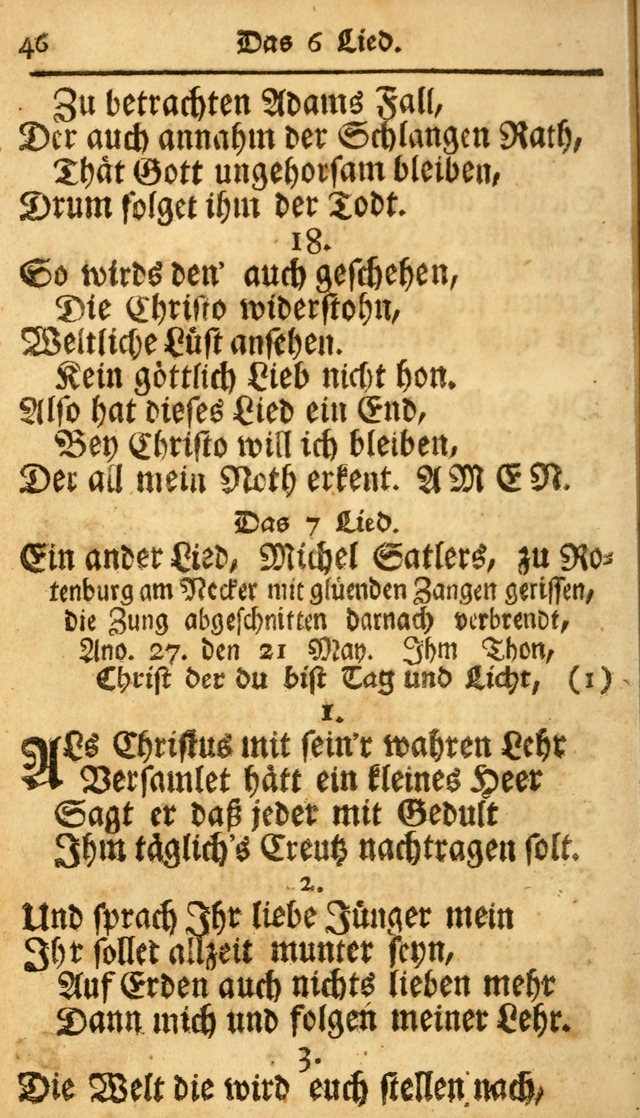 46 Das 6 Lied.
Zu betrachten Adams Fall,
Der auch annahm der Schlangen Rath,
Thät Gott ungehorsam bleiben,
Drum folget ihm der Todt.
18.
So wirds den' auch geschehen,
Die Christo widerstohn,
Weltliche Lüst ansehen.
Kein göttlich Lieb nicht hon.
Also hat dieses Lied ein End,
Bey Christo will ich bleiben,
Der all mein Noth erkent. AMEN.
Das 7 Lied.
Ein ander Lied, Michel Satlers, zu Ro-
tenburg am Necker mit glüenden Zangen gerissen,
die Zung abgeschnitten darnach verbrendt,
Ano. 27. den 21 May. Ihm Thon,
Christ der du bist Tag und Licht, (1)
1.
ALs Christus mit sein'r wahren Lehr
Versamlet hätt ein kleines Heer
Sagt er daß jeder mit Gedult
Ihm täglich's Creutz nachtragen solt.
2.
Und sprach Ihr liebe Jünger mein
Ihr sollet allzeit munter seyn,
Auf Erden auch nichts lieben mehr
Dann mich und folgen meiner Lehr.
3.
Die Welt die wird euch stellen nach,